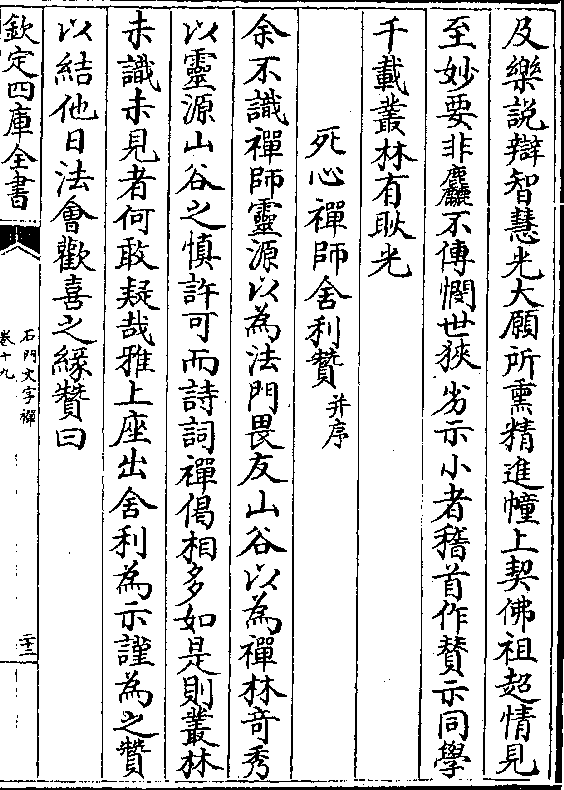 及樂説辯智慧光大願所熏精進幢上契佛祖超情見
至妙要非麤不傳憫世狹劣示小者稽首作贊示同學
千載叢林有耿光
死心禪師舍利贊并序
余不識禪師靈源以為法門畏友山谷以為禪林竒秀
以靈源山谷之慎許可而詩詞禪偈相多如是則叢林
未識未見者何敢疑哉雅上座出舍利為示謹為之贊
以結他日法會歡喜之緣贊曰
欽定四庫全書
石門文字禪
卷十九
二十三